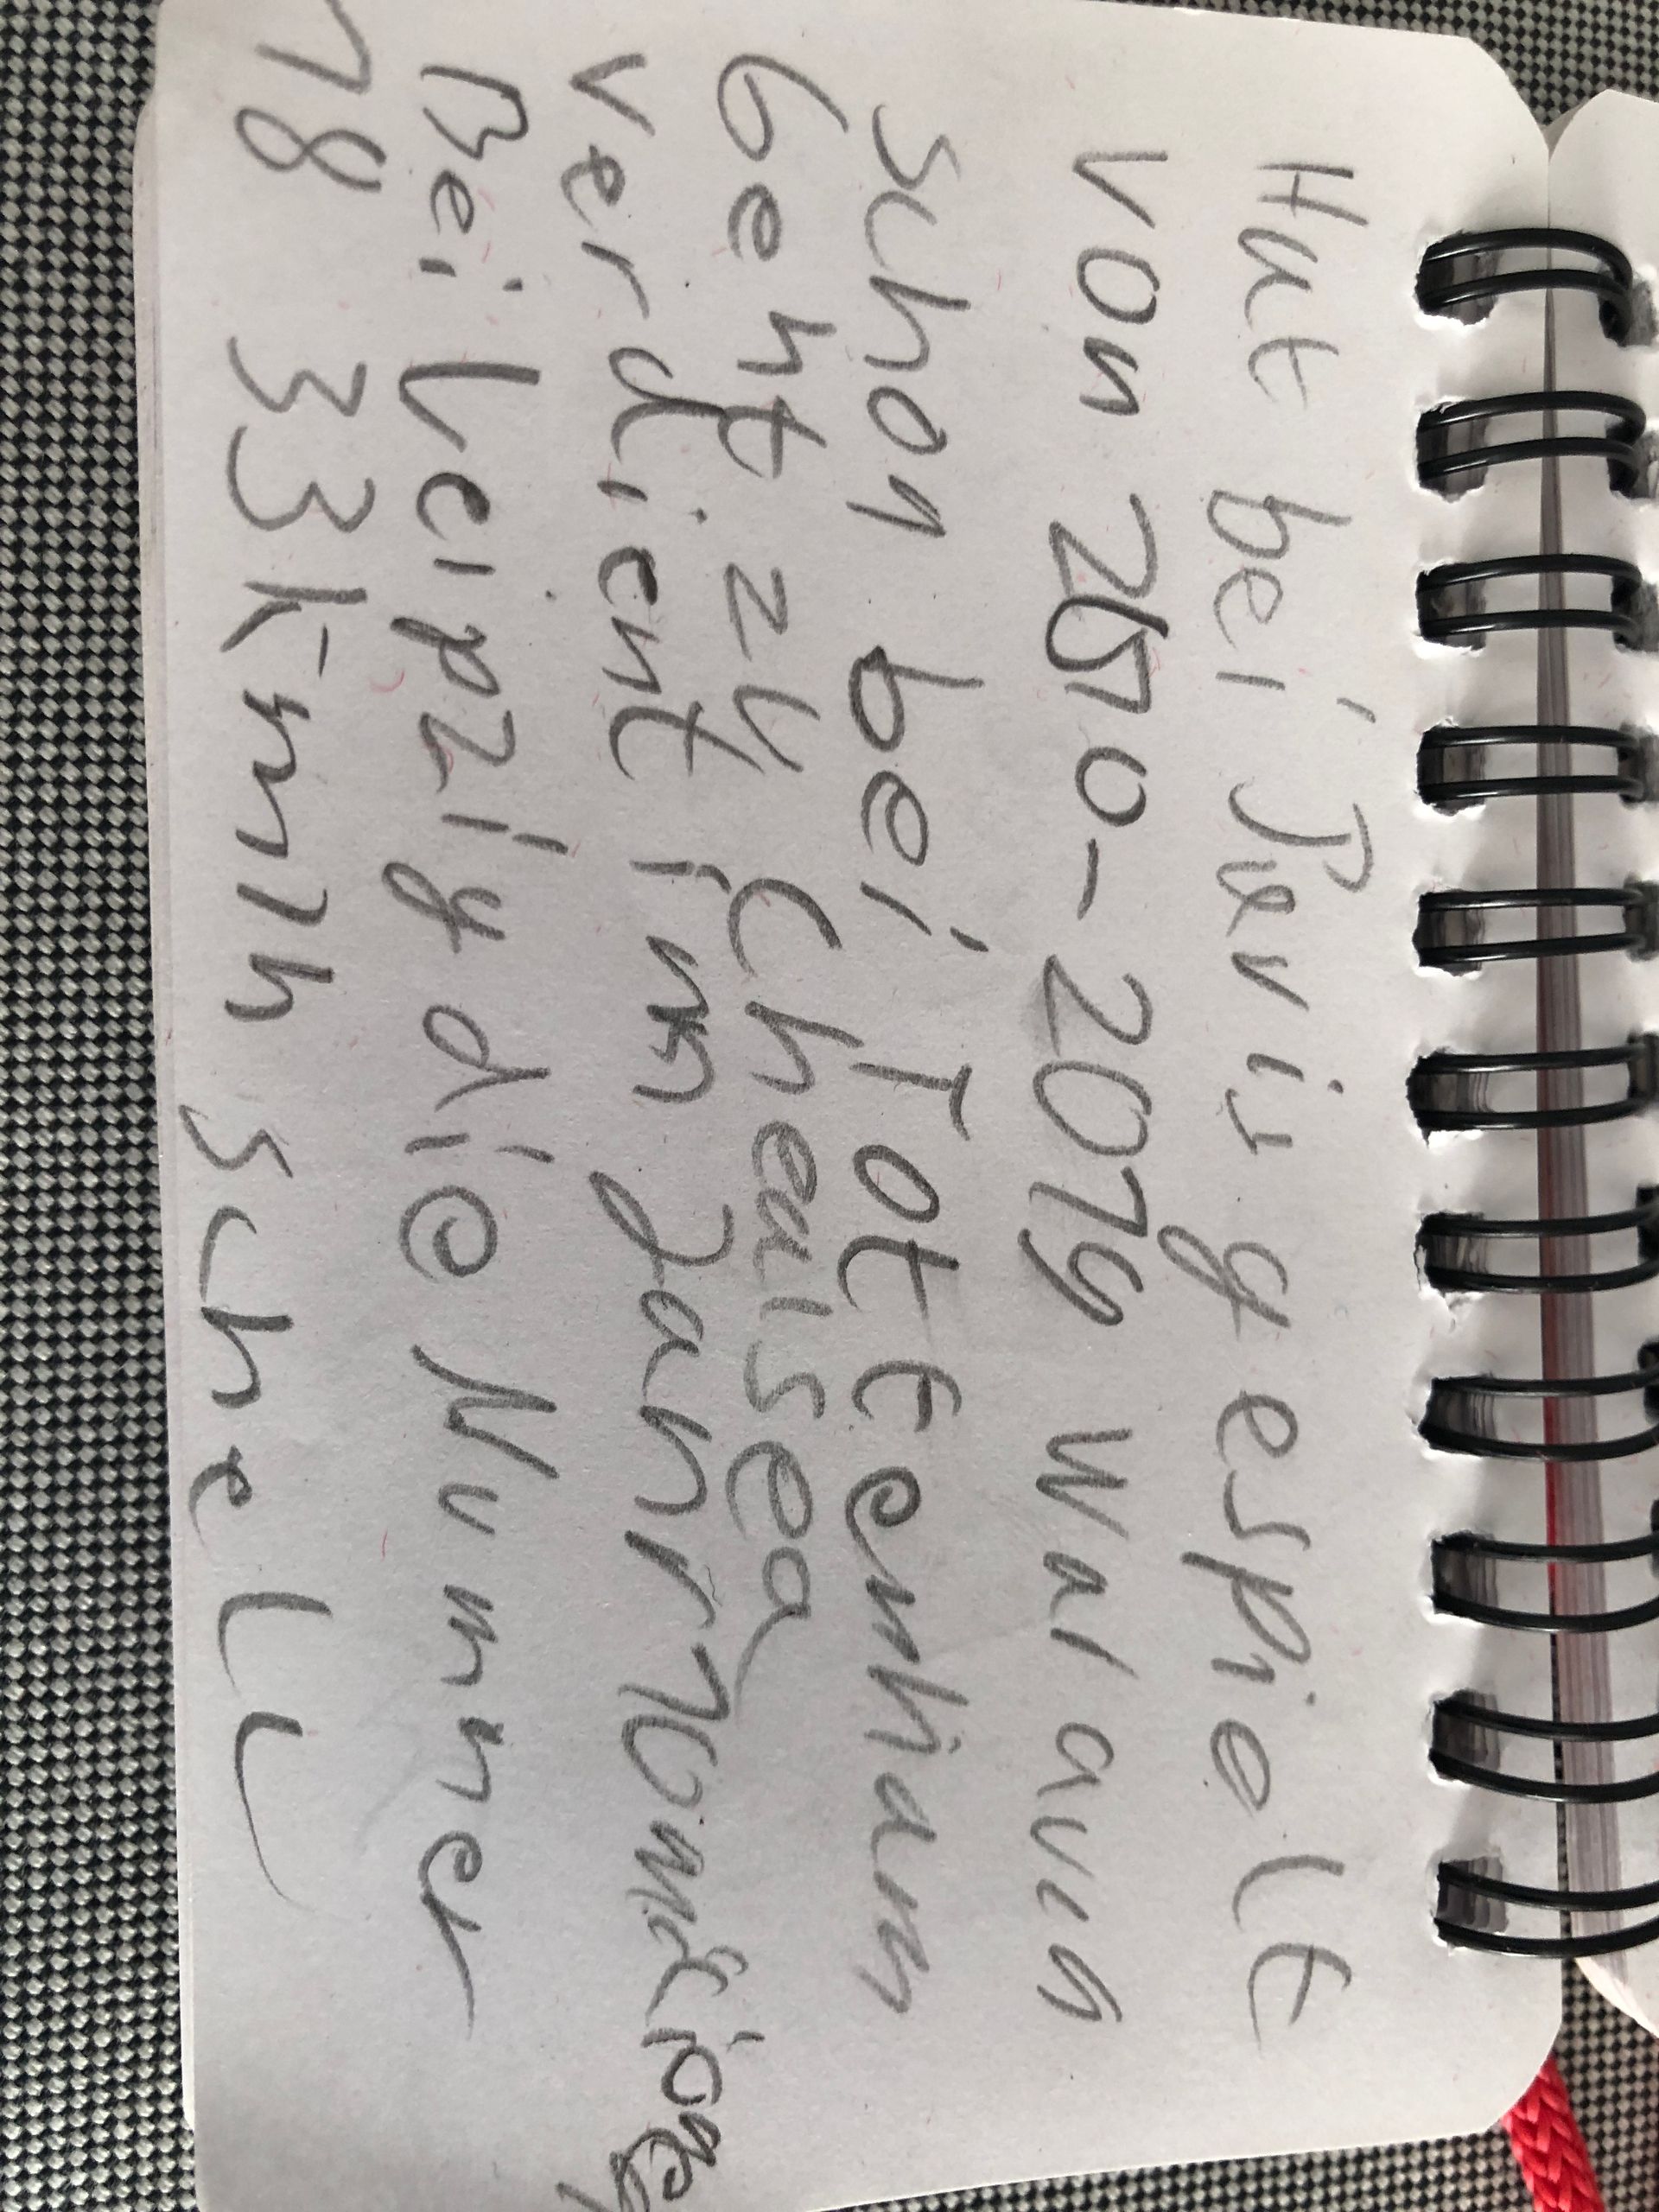 Hat bei Paris gespielt
von 2010-2019 War auch
schon bei Tottenham
Geht zu Chealsea
verdient im Jahr 10 millionen
Bei Leipzig die Nummer
18 33 km/h schnell